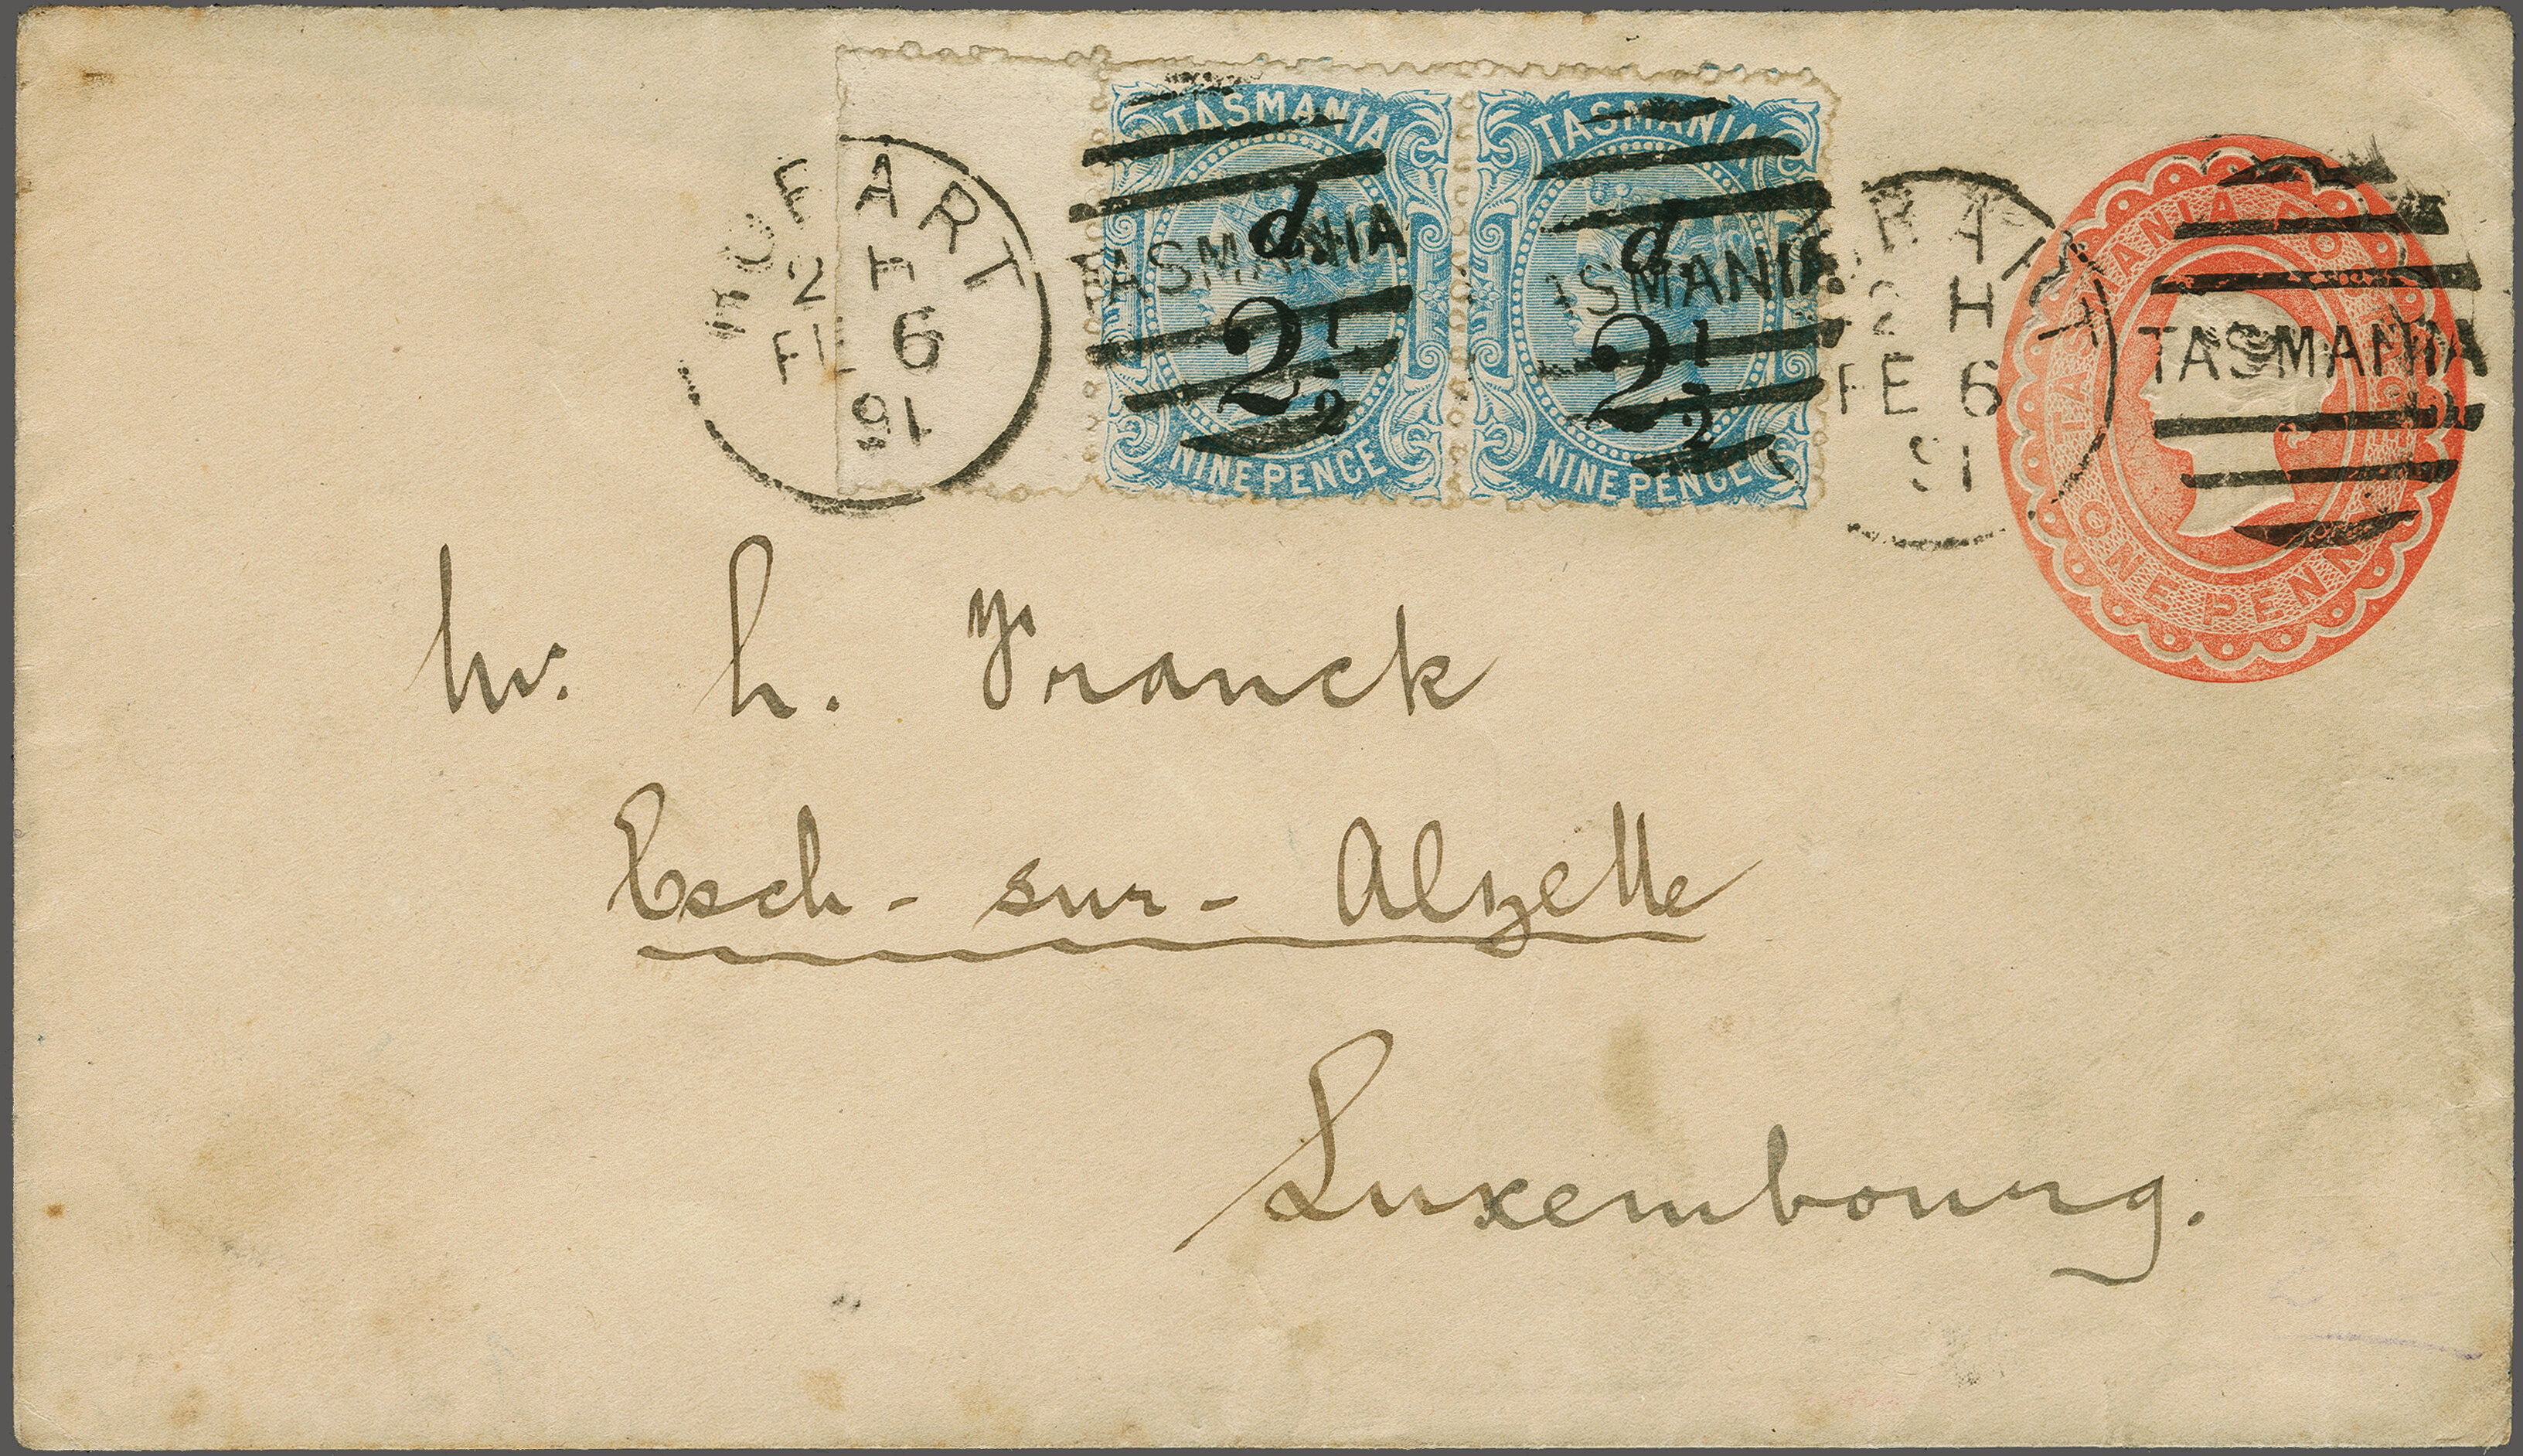 TASMANIA
d.
2½
NINE PENCE
TASMANIA
d.
2½
NINE PENCE
HOBART
2 H
FE 6
91
TASMANIA
TASMANIA
2 H
FE 6
91
TASMANIA
TASMANIA POSTAGE
ONE PENNY
Mr. h. Franck
Esch-sur-Alzette
Luxembourg.